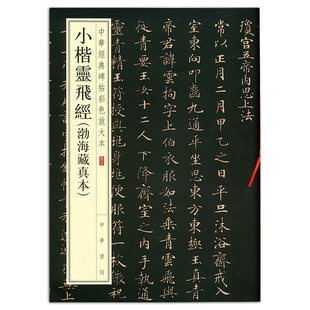 中華經典碑帖彩色放大本
小楷靈飛經（渤海藏真本）
中華書局
瓊宮五帝內思上法
常以正月二月甲乙之日平旦沐浴齋戒入
室東向叩齒九通平坐思東方東極玉真青
帝君諱雲拘字上伯衣服如法乘青雲飛輿
從青要玉女十二人下降齋室之內手執通
靈青精玉符授與地身地便服符一枚微祝